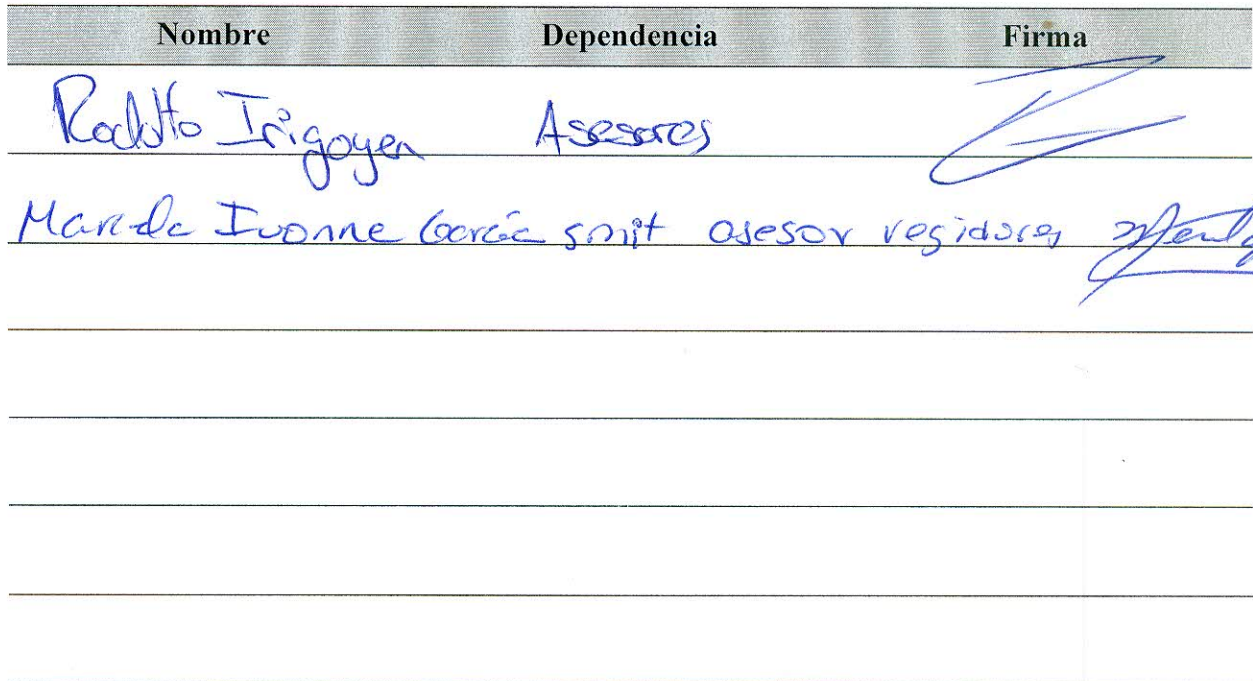 Nombre Dependencia Firma
Rodolfo Irigoyen Asesores
Marcela Ivonne García smit asesor regidores